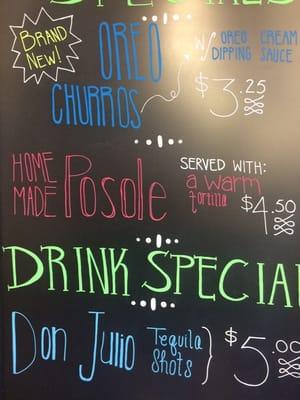 SPECIALS
BRAND
NEW!
OREO
CHURROS
W/ OREO CREAM
DIPPING SAUCE
$3.25
HOME
MADE
Posole
SERVED WITH:
a warm
tortilla
$4.50
DRINK SPECIA
Don Julio
Tequila
Shots
$5.00